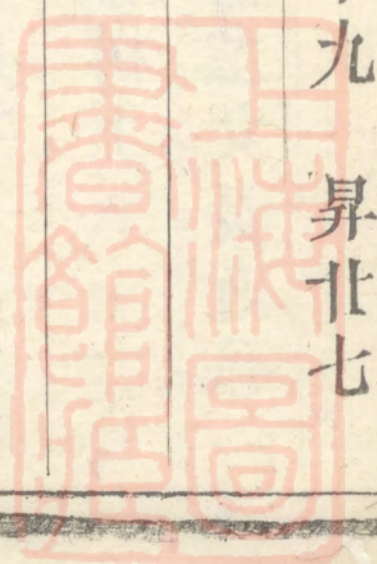 九　昇廿七
上海圖
書館藏